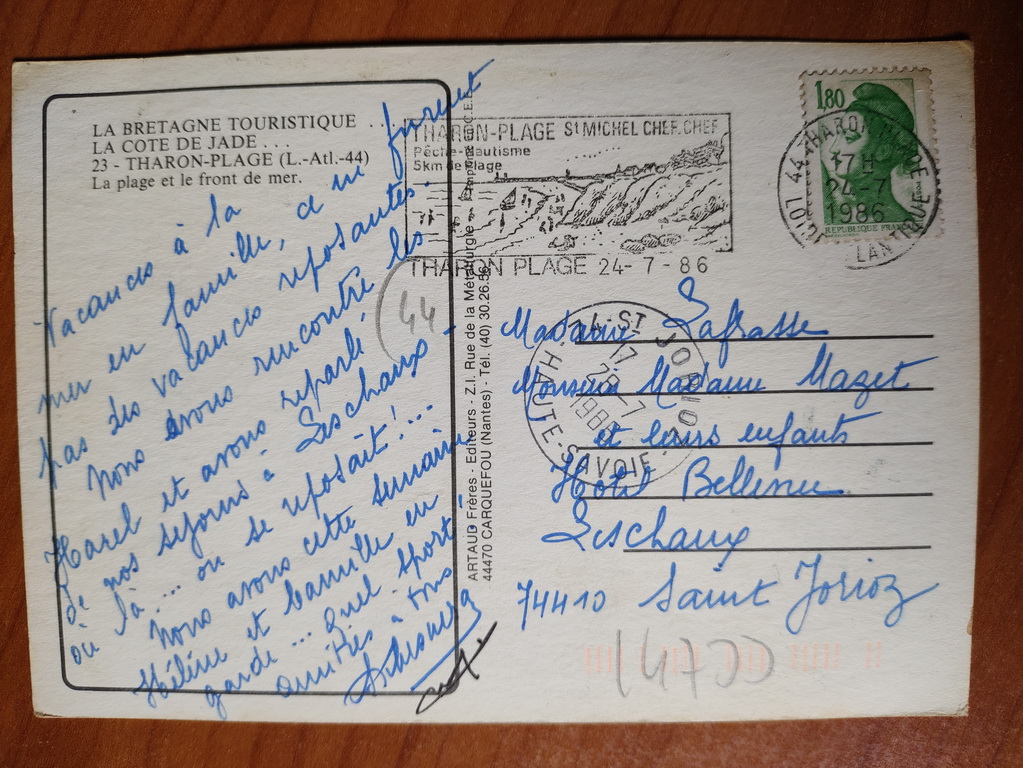 LA BRETAGNE TOURISTIQUE . . .
LA COTE DE JADE . . .
23 - THARON-PLAGE (L.-Atl.-44)
La plage et le front de mer.
Vacances à la
mer en famille, ce ne furent
pas des vacances reposantes.
Nous avons rencontré les
Harel et avons reparlé
de nos séjours à Leschaux -
où là ... on se reposait! ...
Nous avons cette semaine
Hélène et Camille en
garde ... quel sport!
amitiés à tous
44
ARTAUD Frères - Editeurs - Z.I. Rue de la Métallurgie
44470 CARQUEFOU (Nantes) - Tél. (40) 30.26.56
THARON-PLAGE St MICHEL CHEF.CHEF
Pêche-Nautisme
5km de plage
THARON PLAGE 24-7-86
1,80
REPUBLIQUE
44 THARON PLAGE
17H
24-7
1986
LOIRE ATLANTIQUE
74-ST JORIOZ
17
28-7
1986
HAUTE-SAVOIE
Madame Lafrasse
Monsieur Madame Mazet
et leurs enfants
Hôtel Bellevue
Leschaux
74410 Saint Jorioz